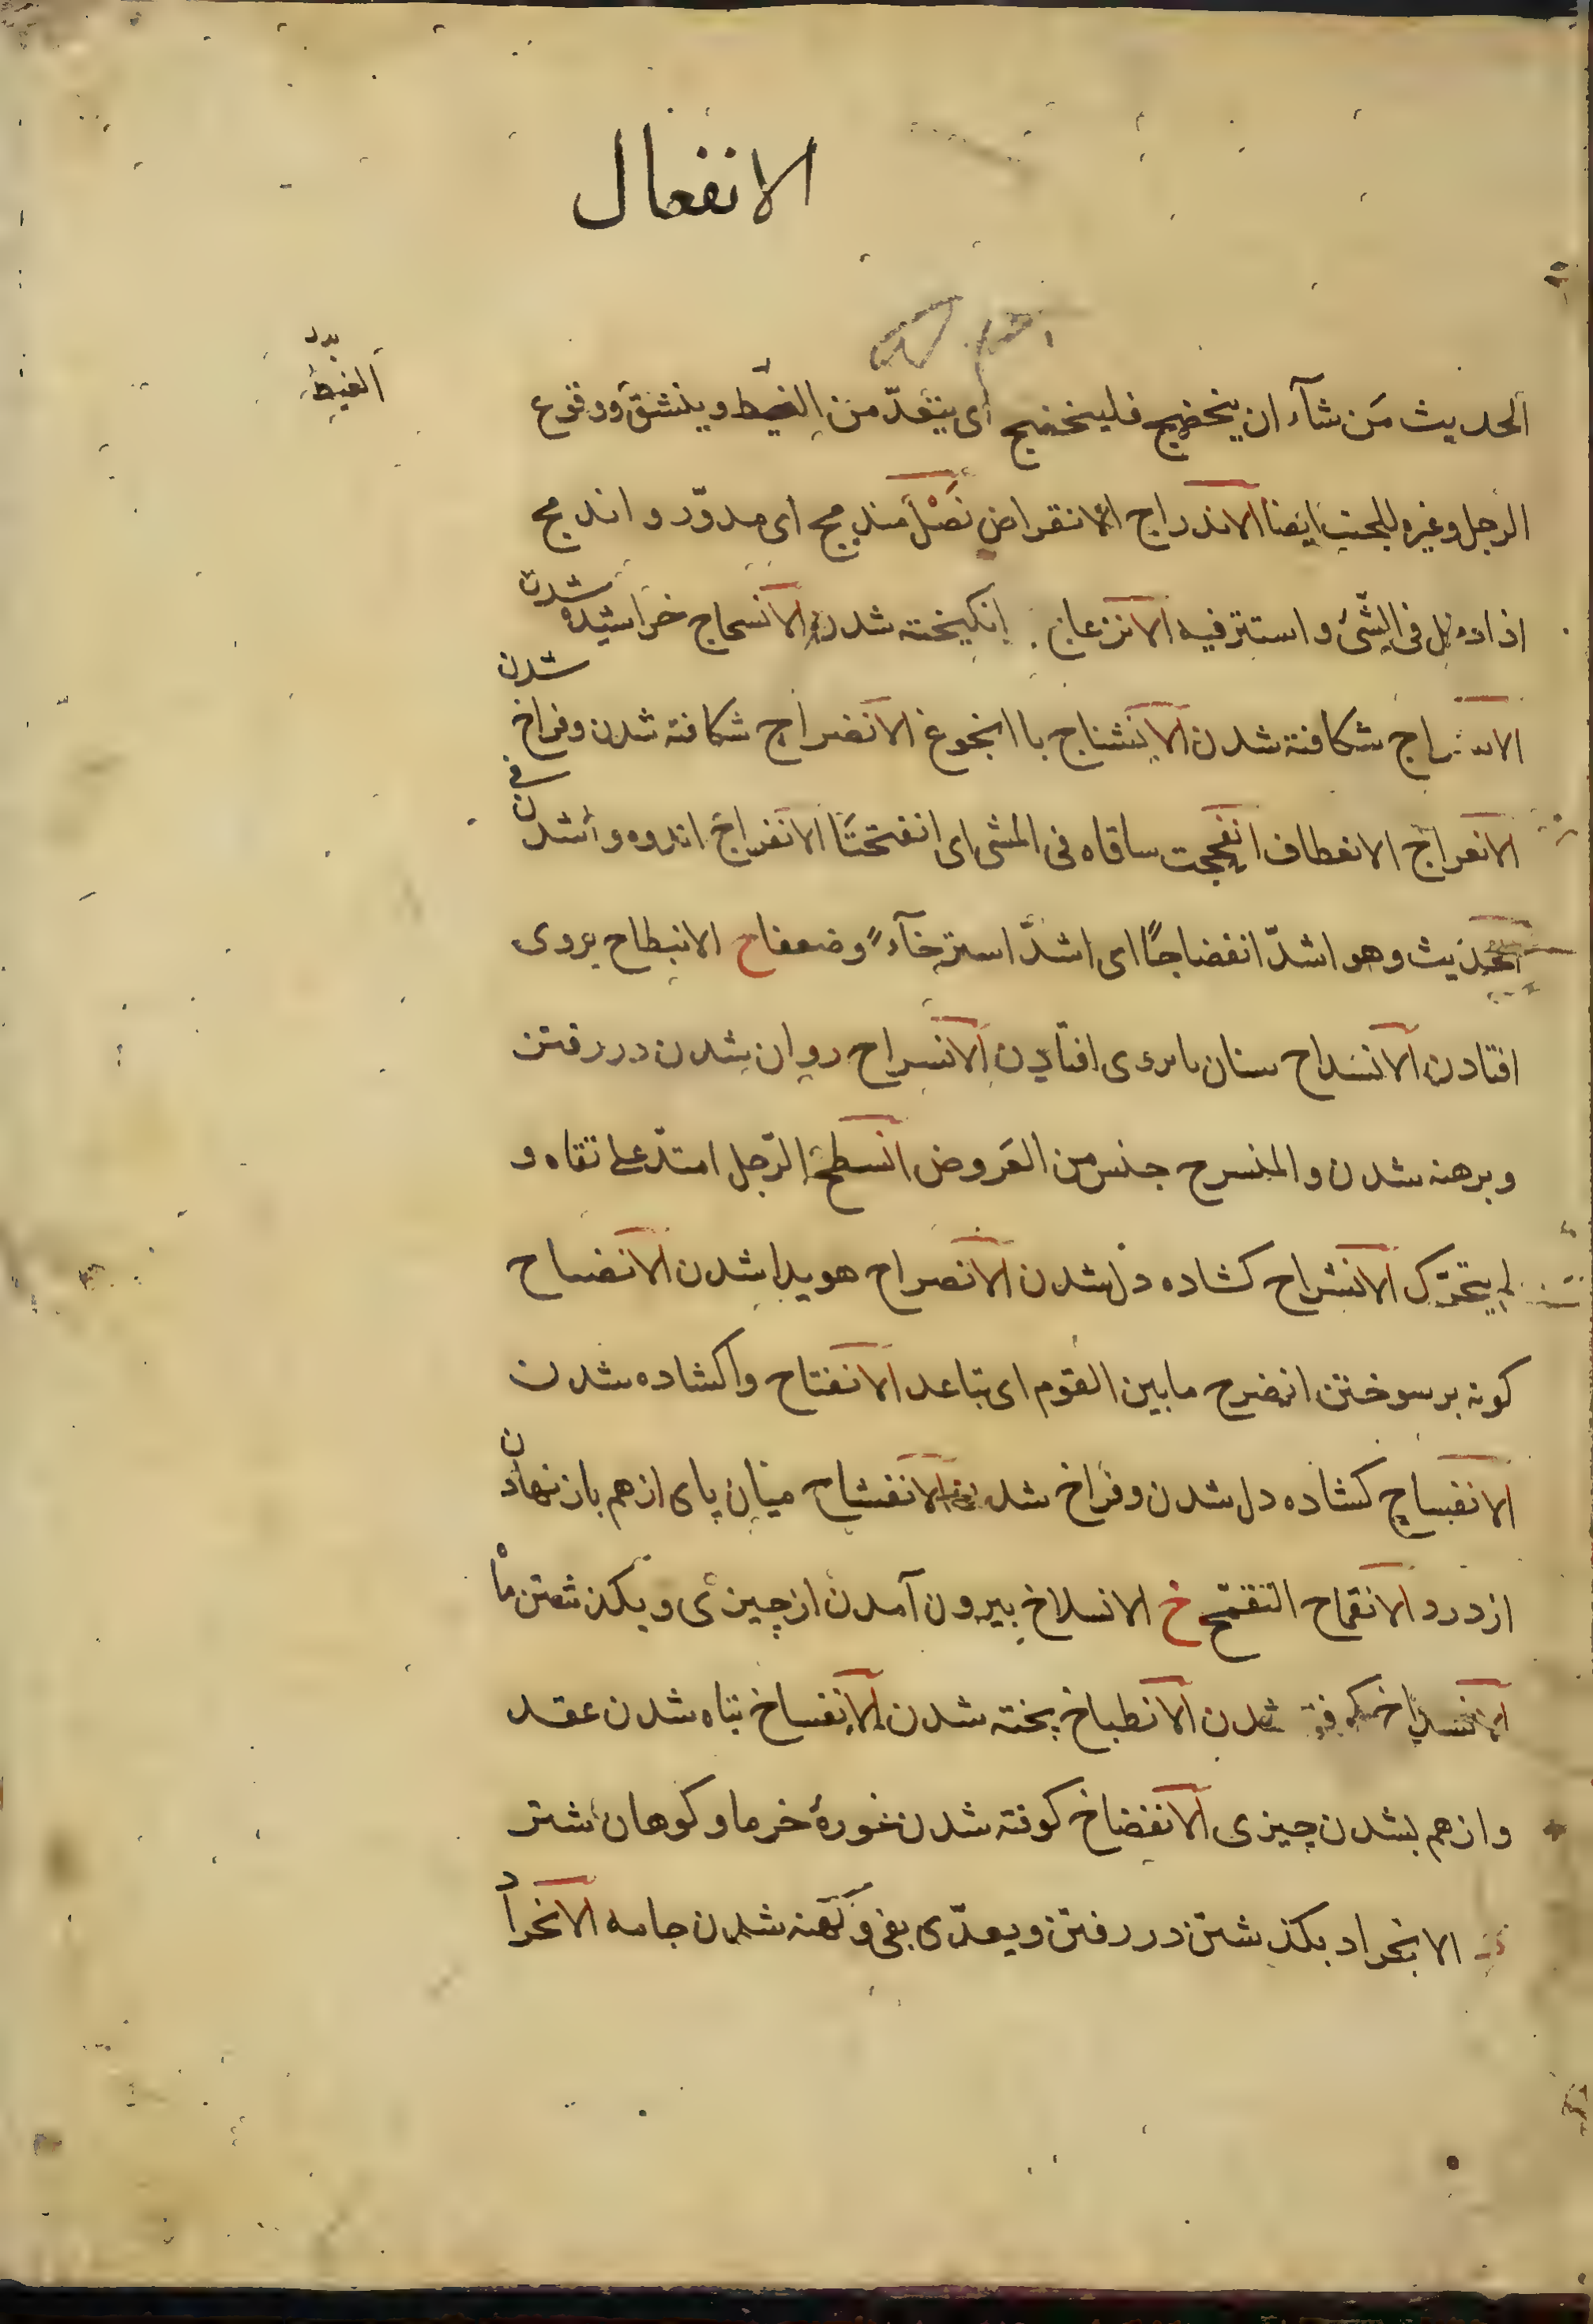 الانفعال
الحديث مَن شآء ان ينخضج فلينخضج اى ينقدّ من الغيظ وينشق ووقوع
بدل
الغيظ
الرجل وغيره للجنب ايضا الاندراج الانقراض نَصْل مندمج اى مدوّر واندمج
اذا دخل فى الشّئ واستتر فيه الانزعاج انكيخته شدن الانسحاج خراشيده شدن
شكافته شدن الانشناج با انجوغ الانضراج شكافته شدن وفراخ شدن
الانعراج الانعطاف انفججت ساقاه فى المشى اى انفتحتَا الانفراج اندوه واشدن فى
الحديث وهو اشدّ انفضاجًا اى اشدّ استرخآءً وضعفا ح الانبطاح بروى
افتادن الانسداح ستان بروى افتادن الانسراح روان شدن در رفتن
وبرهنه شدن والمنسرح جنس من العَروض انسطح الرّجل امتدّ على قفاه و
لم يتحرّك الانشراح كشاده دل شدن الانصراح هويدا شدن الانضباح
كونه بر سوختن انضرح ما بين القوم اى تباعد الانفتاح واكشاده شدن
الانفساح كشاده دل شدن وفراخ شدن الانفشاح ميان پاى از هم باز نهادن
از درد الانقماح التقمّح خ الانسلاخ بيرون آمدن از چيزى وبكذشتن ماه
الانشداخ شدن الانطباخ پخته شدن الانفساخ تباه شدن عقد
واز هم بشدن چيزى الانفضاخ كوفته شدن غورهٔ خرما وكوهان شتر
د الانجراد بكذشتن در رفتن ويعدّى بفى وكهنه شدن جامه الانخراد